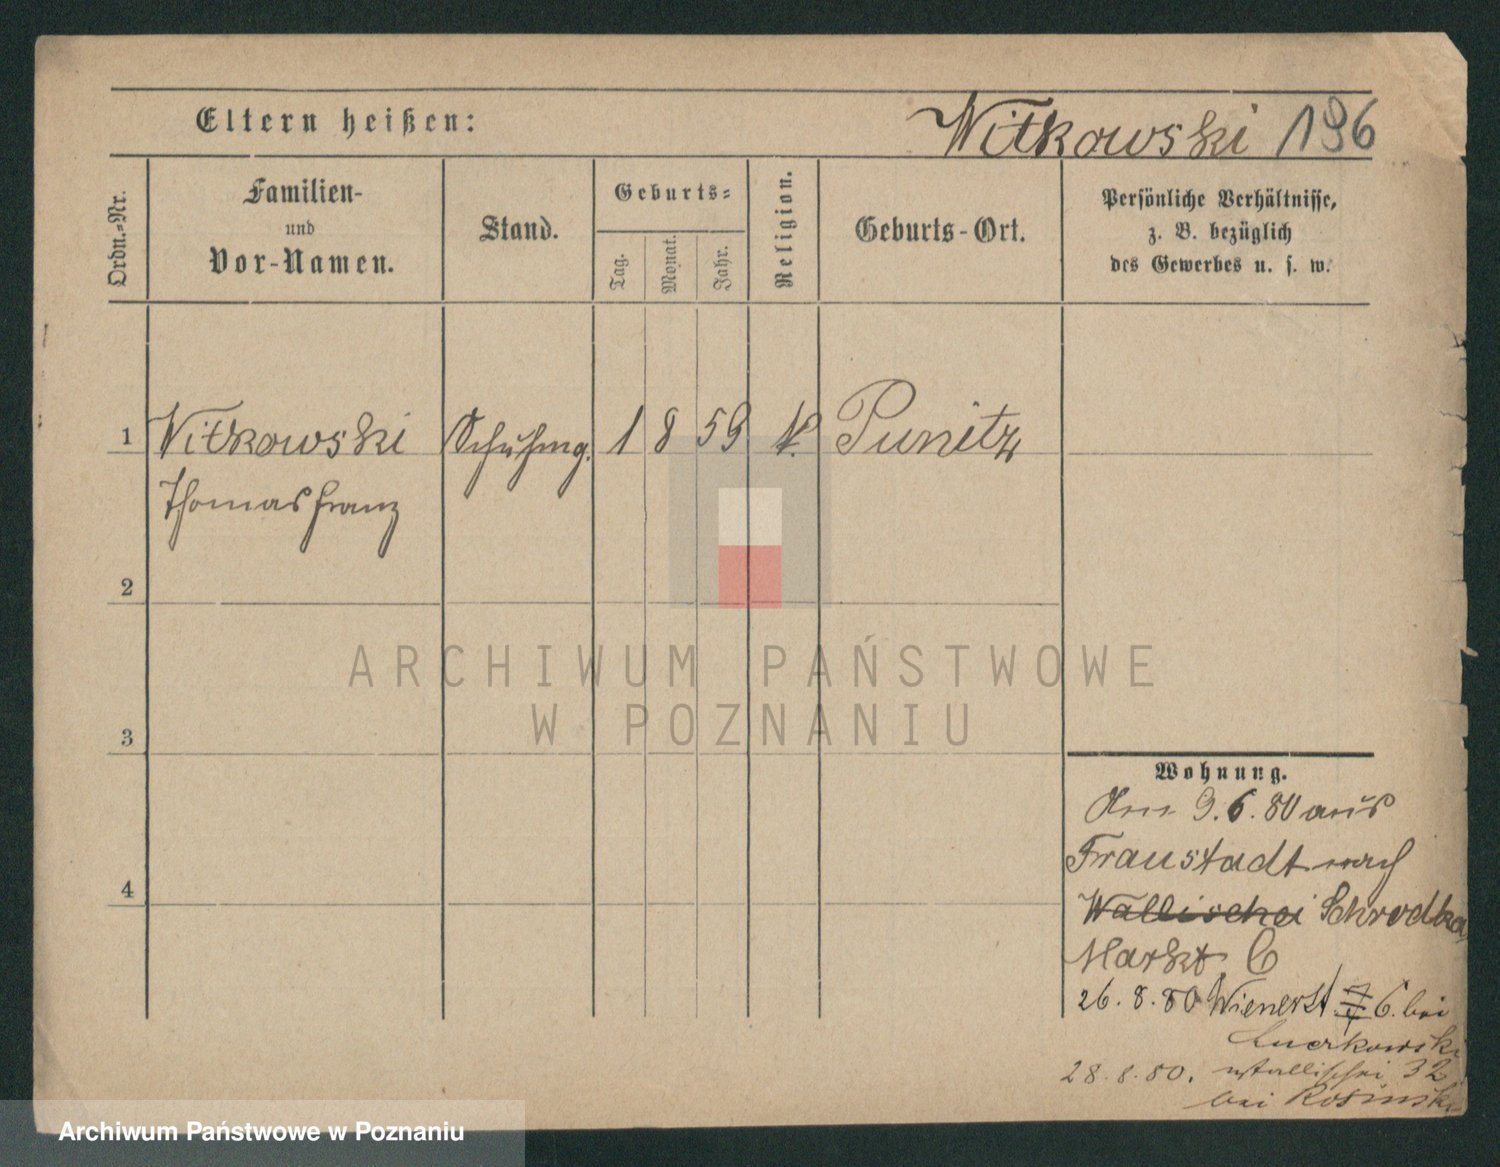 Eltern heißen:
Witkowski 196
Ordn.-Nr.
Familien-
und
Vor-Namen.
Stand.
Geburts-
Tag.
Monat.
Jahr.
Religion.
Geburts-Ort.
Persönliche Verhältnisse,
z. B. bezüglich
des Gewerbes u. s. w.
1 Witkowski Schuhmg. 1 8 59 k. Punitz
Thomas Franz
2
3
4
Wohnung.
Am 9.6.80 aus
Fraustadt nach
Wallischei Schrodka
Markt 6
26.8.80 Wienerst 6. bei
28.8.80. Wallischei 32
bei Rosinski
ARCHIWUM PAŃSTWOWE
W POZNANIU
Archiwum Państwowe w Poznaniu